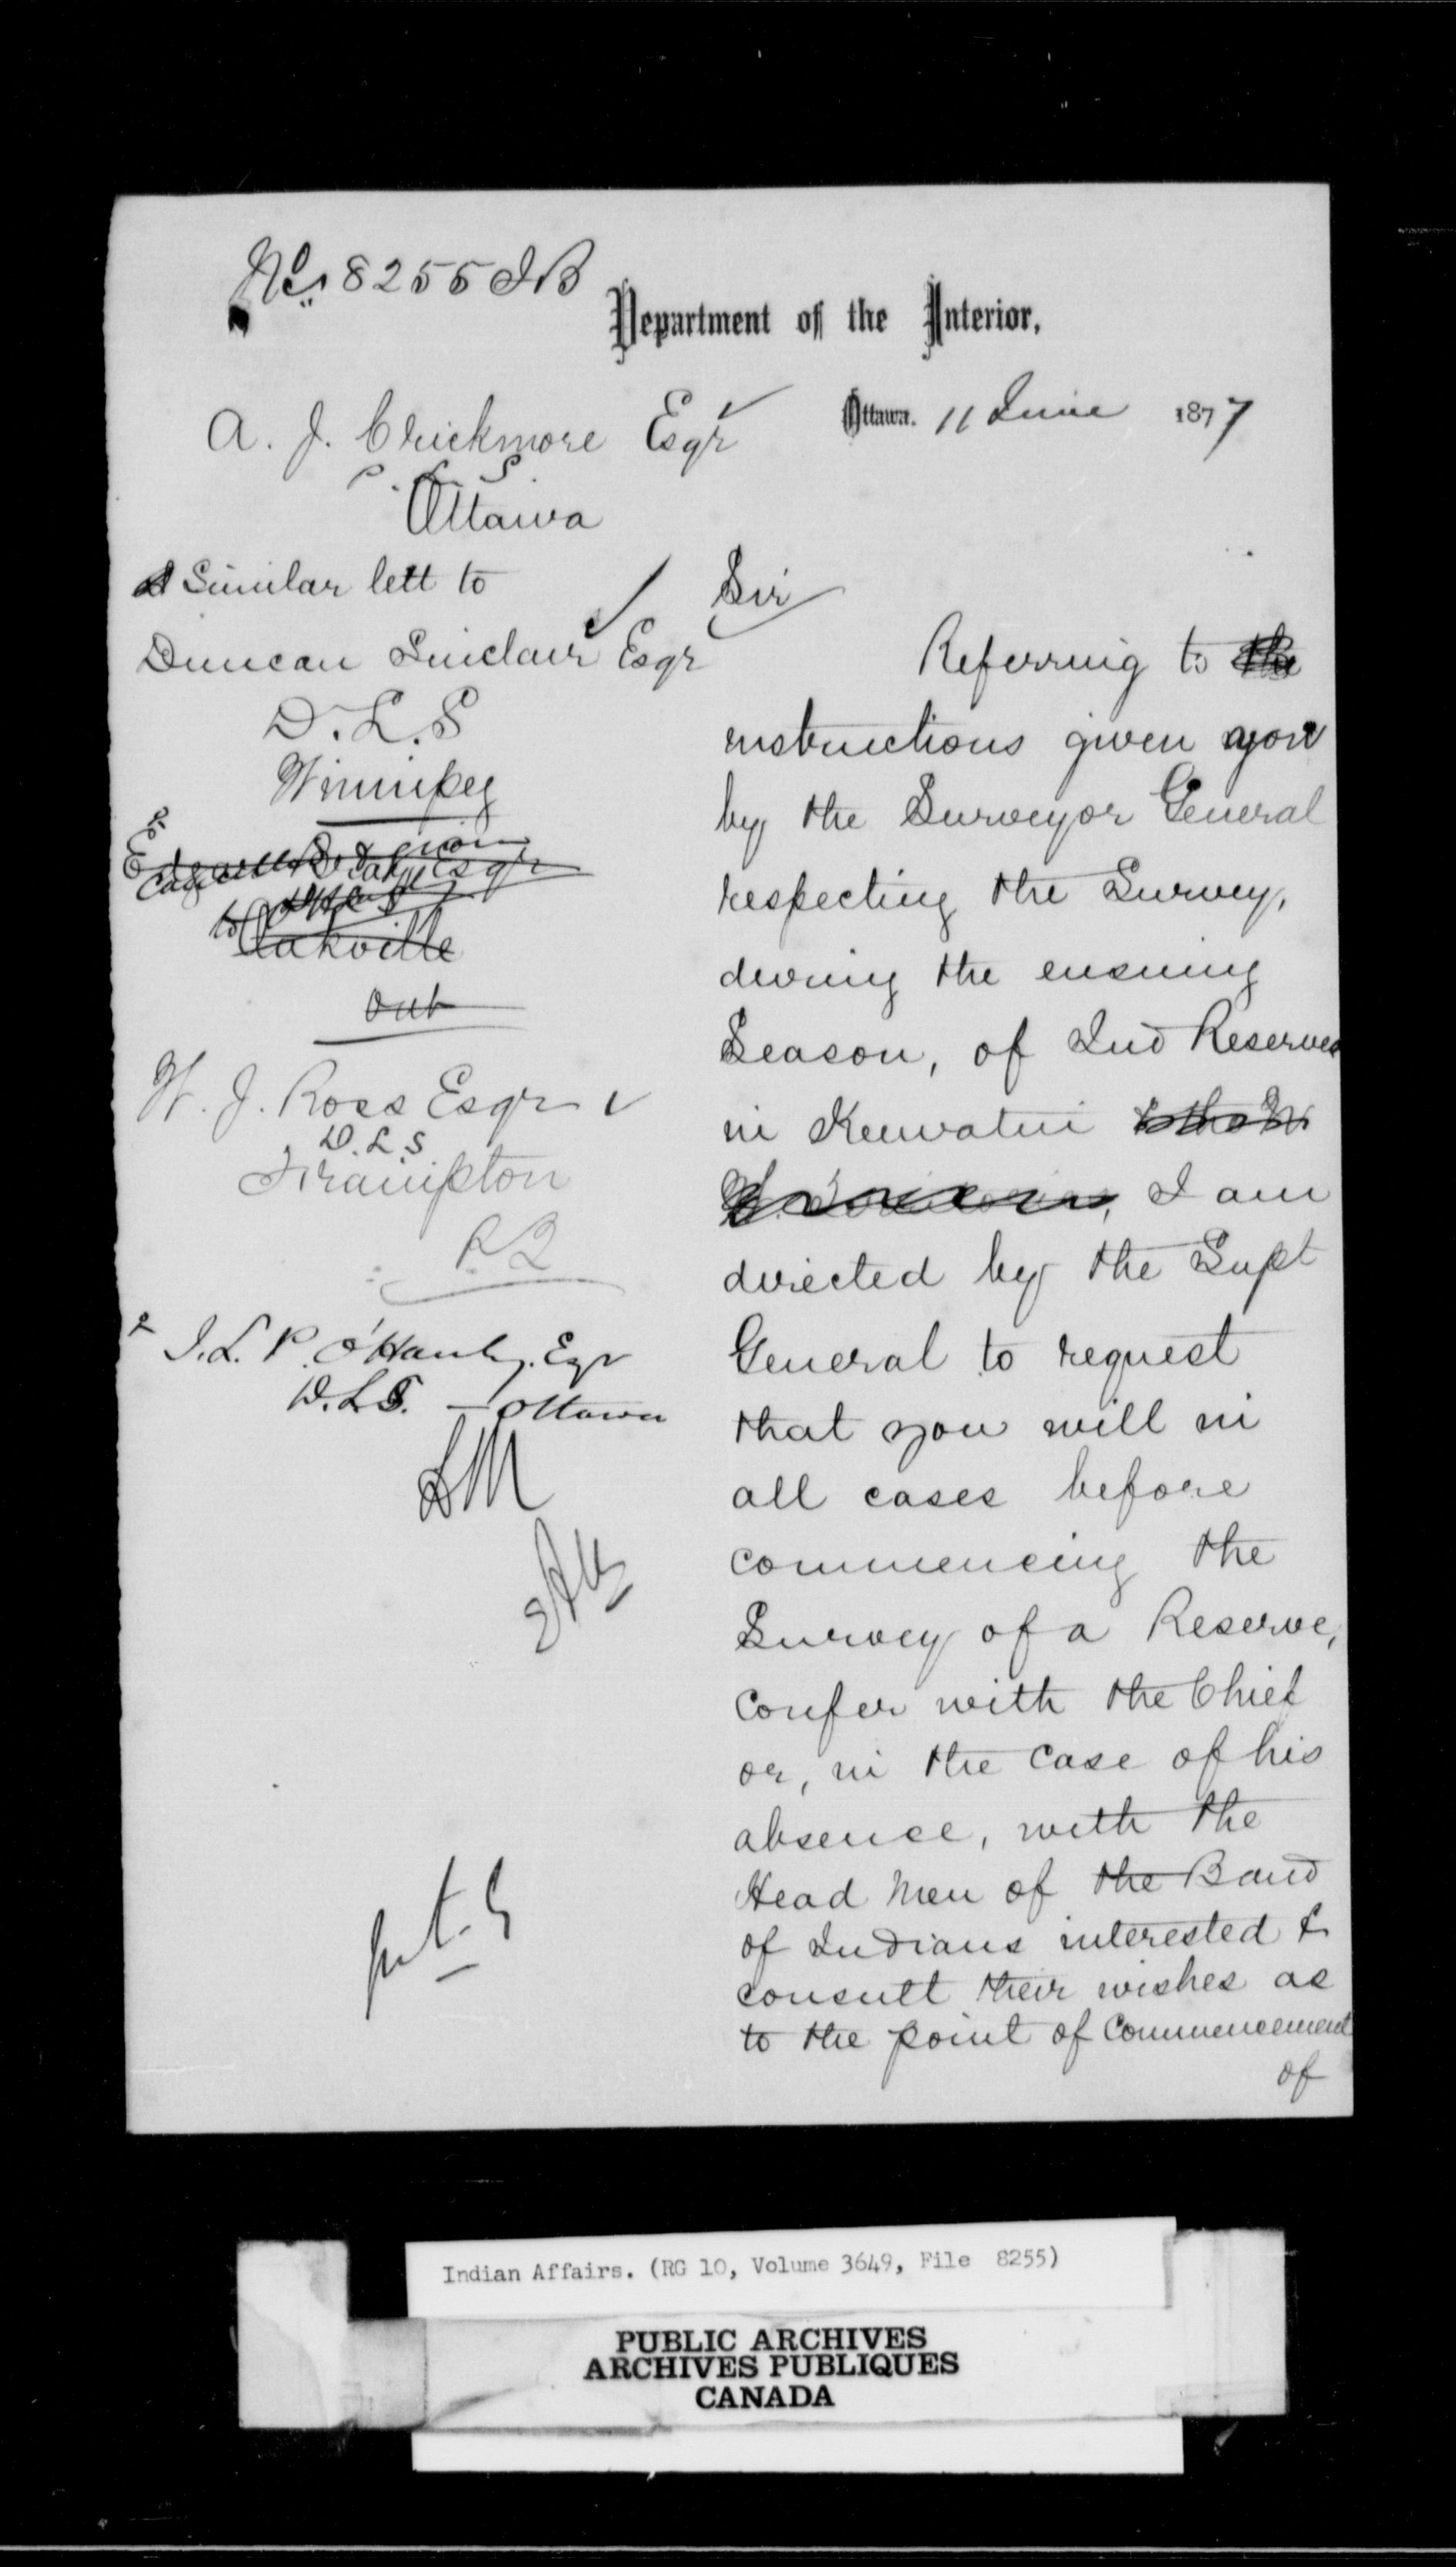 No. 8255 IB
Department of the Interior,
Ottawa. 11 June 1877
A. J. Chickmore Esqr
P. L. S.
Ottawa
Similar lett to
Duncan Sinclair Esqr
D. L. S
Winnipeg
Oakville
Ont
W. J. Ross Esqr
D. L. S
Frampton
P. Q
J. L. P. O'Hanly, Esqr
D. L. S. — Ottawa
Sir
Referring to the
instructions given you
by the Surveyor General
respecting the Survey,
during the ensuing
Season, of Ind Reserves
in Keewatin
I am
directed by the Supt
General to request
that you will in
all cases before
commencing the
Survey of a Reserve,
confer with the Chief
or, in the case of his
absence, with the
Head Men of the Band
of Indians interested &
consult their wishes as
to the point of Commencement
of
Indian Affairs. (RG 10, Volume 3649, File 8255)
PUBLIC ARCHIVES
ARCHIVES PUBLIQUES
CANADA